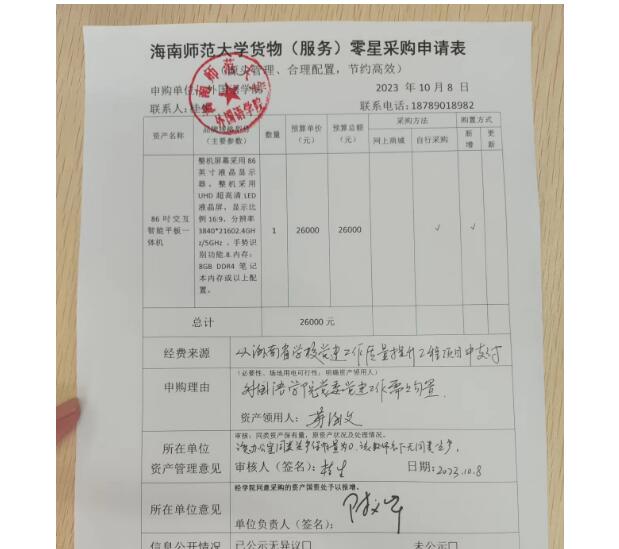 海南师范大学货物（服务）零星采购申请表
（源头管理、合理配置，节约高效）
申购单位：外国语学院
2023 年 10 月 8 日
联系人：
联系电话:18789018982
海南师范大学
外国语学院
资产名称
（主要参数）
数量
预算单价
（元）
预算总额
（元）
采购方法
网上商城
自行采购
购置方式
新增
更新
86 吋交互
智能平板一
体机
整机屏幕采用 86
英寸液晶显示
器。整机采用
UHD 超高清 LED
液晶屏，显示比
例 16:9，分辨率
3840*21602.4GHz
/5GHz 、手势识
别功能.8.内存:
8GB DDR4 笔记
本内存或以上配
置。
1
26000
26000
√
√
总计
26000 元
经费来源
从海南省学校党建工作质量提升工程项目中支付
申购理由
（必要性、场地用电可行性，明确资产领用人）
外国语学院党委党建工作需要购置.
资产领用人:
所在单位
资产管理意见
审核：同类资产保有量，原资产状况及处理情况。
审核人（签名）:
日期: 2023.10.8
所在单位意见
经学院同意采购的资产国资处予以报增。
单位负责人（签名）:
信息公开情况
已公示无异议口
未公示口